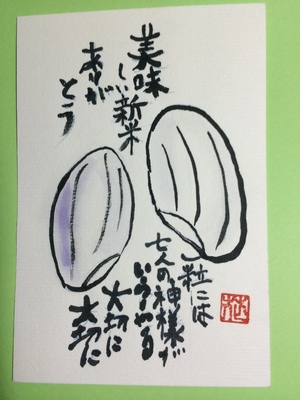 美味
しい新米
ありが
とう
一粒には
七人の神様が
いらっしゃる
大切に
大切に